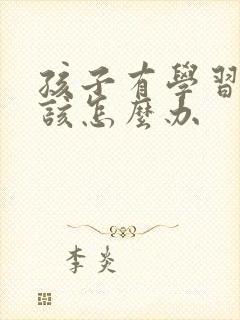 孩子有學習
該怎麼办
李炎